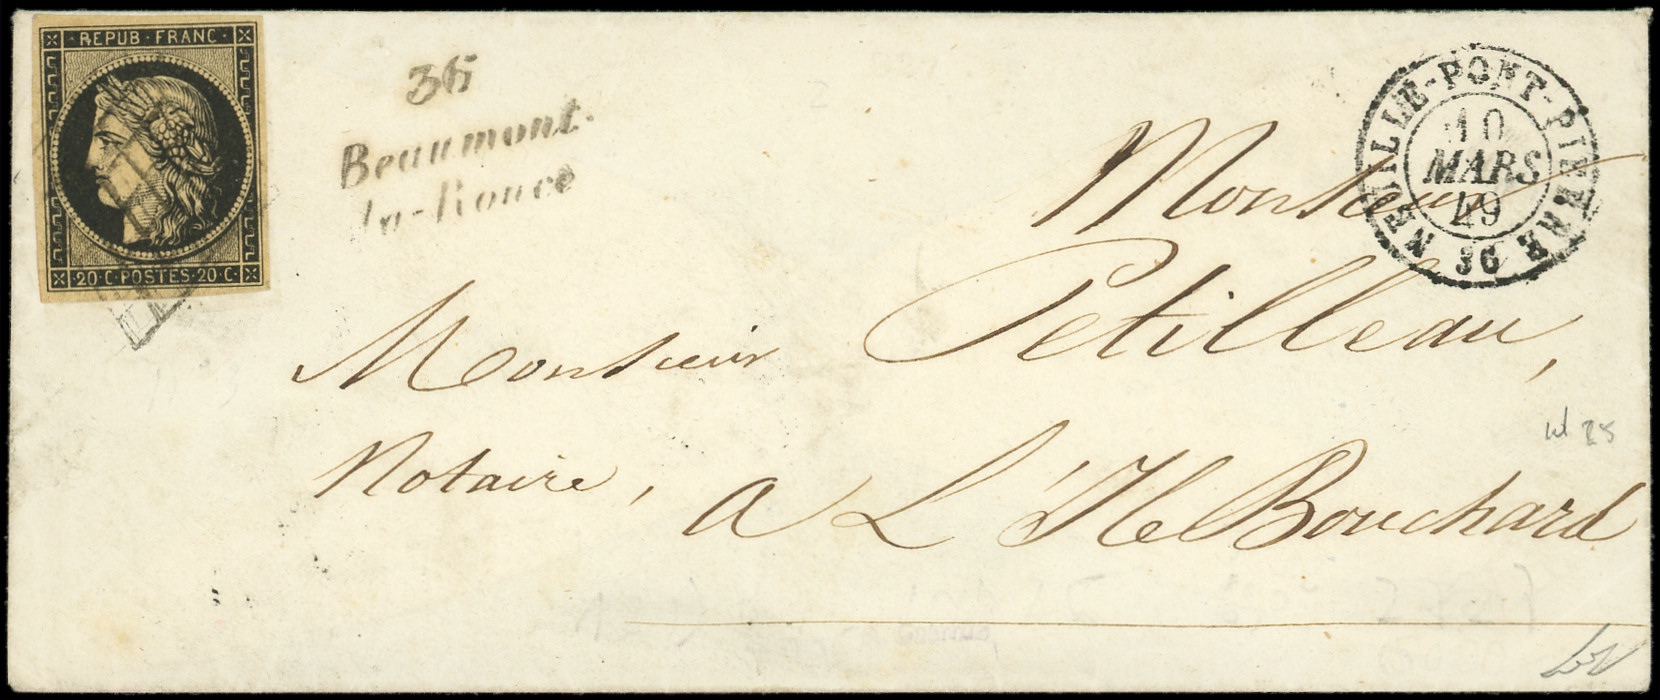 REPUB FRANC
20 C POSTES 20 C
36
Beaumont-
la-Ronce
NEUILLE-PONT-PIERRE 36
10
MARS
49
Monsieur
Petilleau,
Monsieur
Notaire, a L'Ile Bouchard